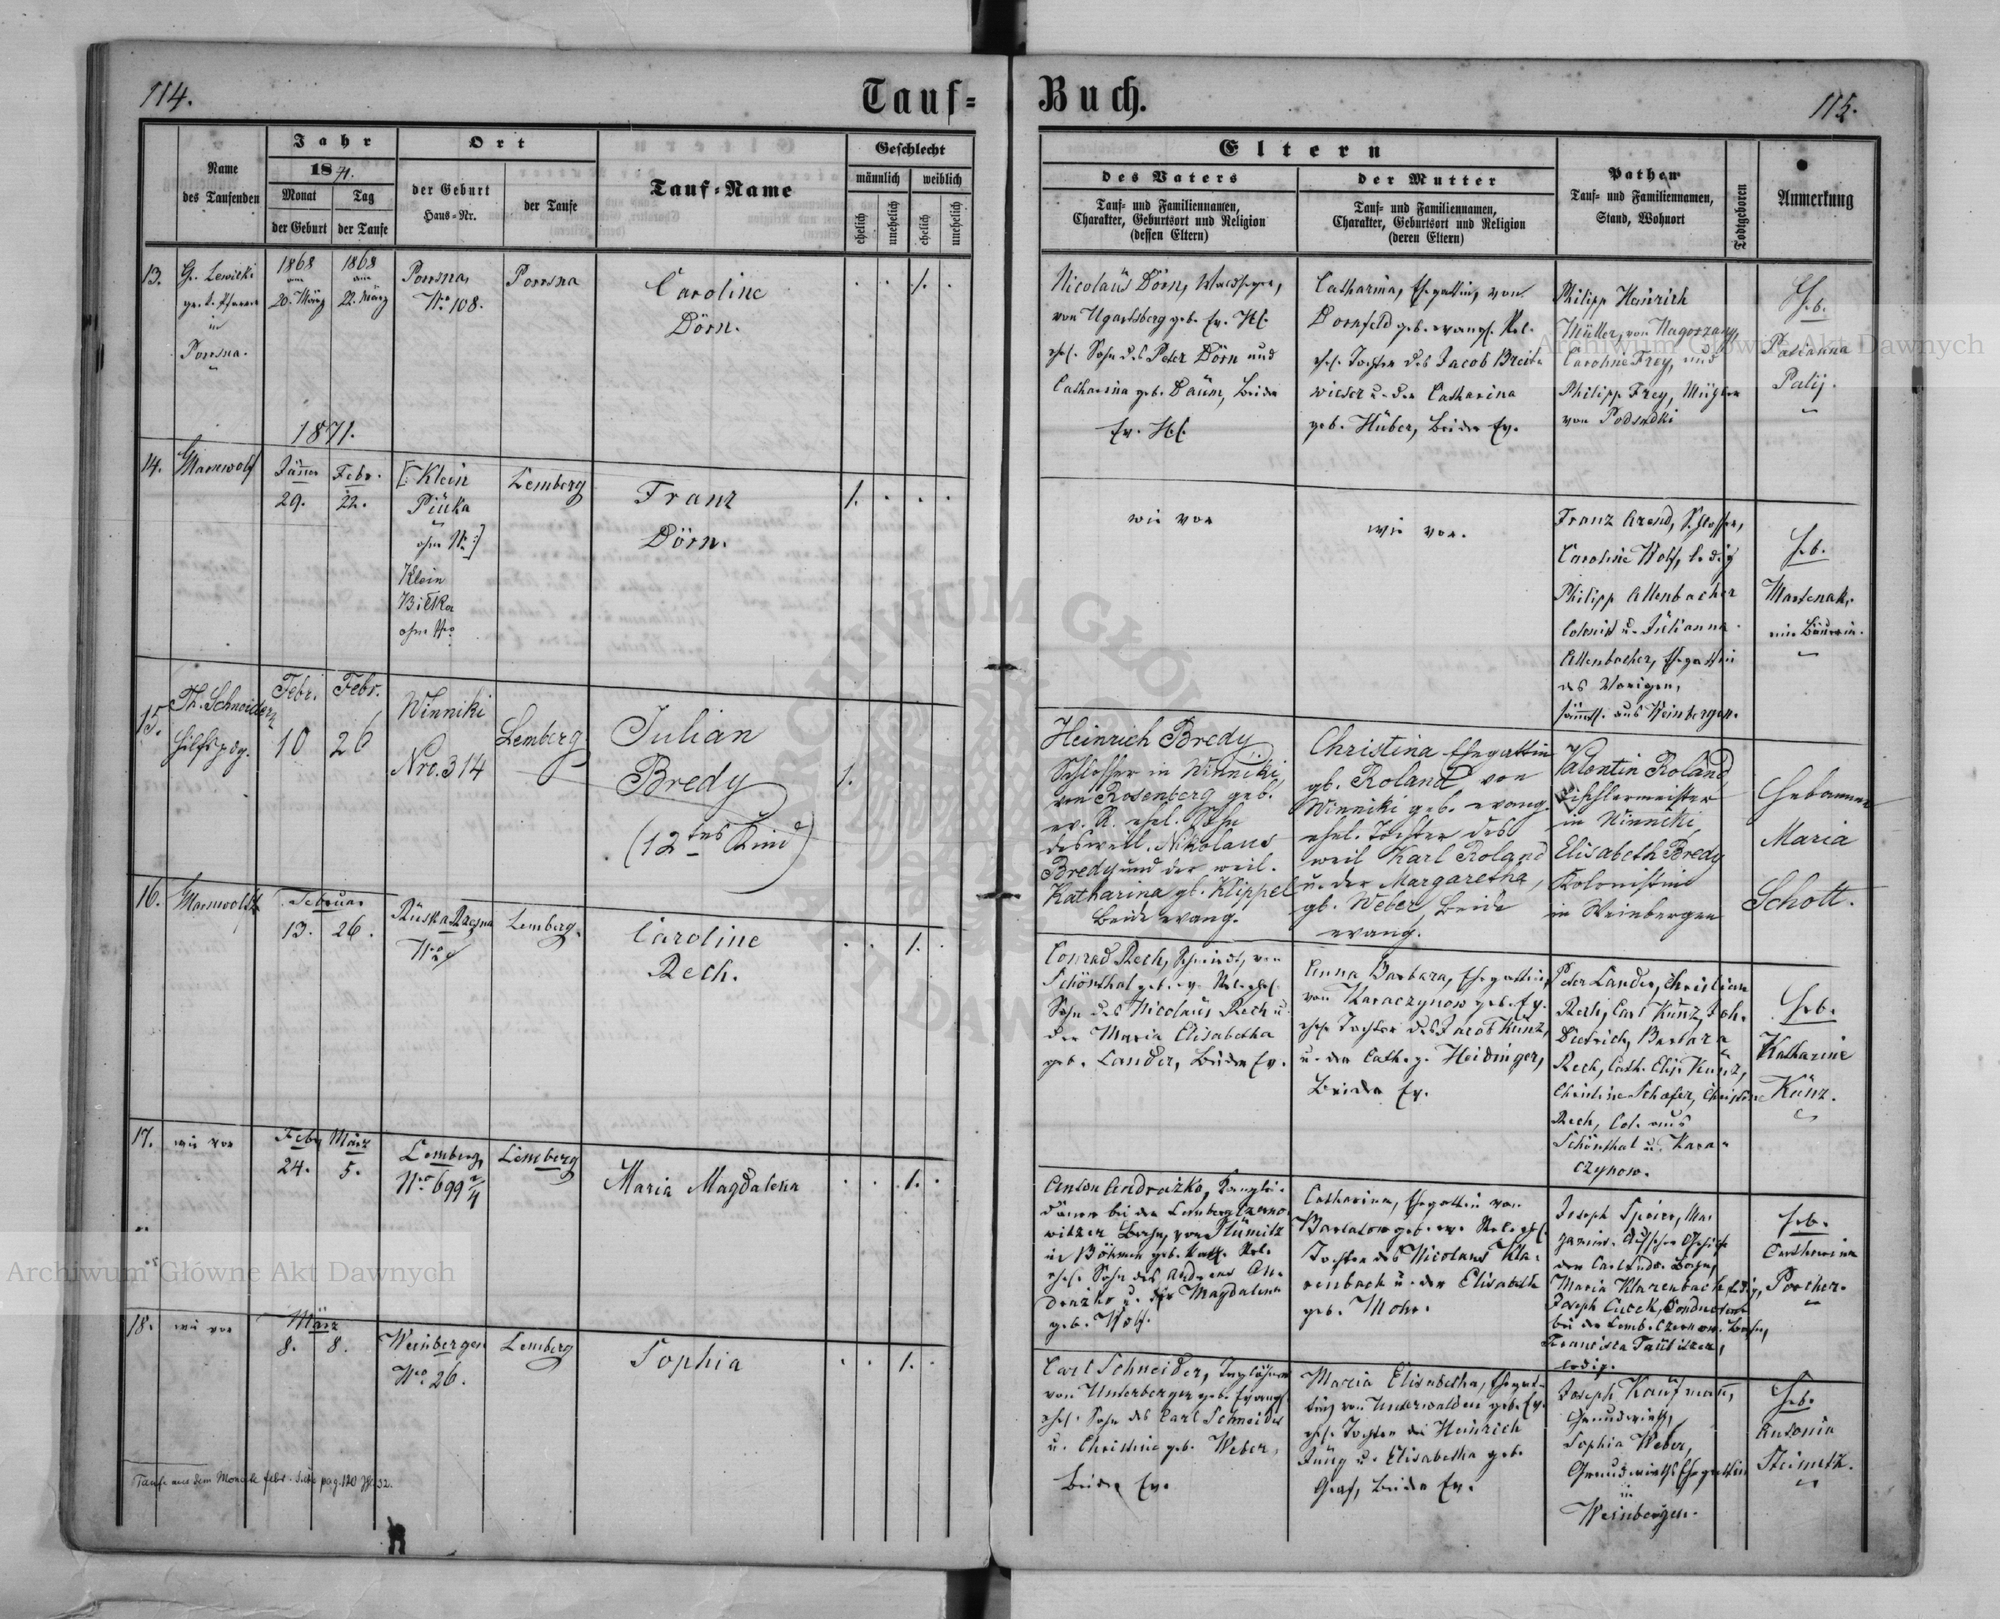 114.
Tauf-
Buch.
115.
Name
des Taufenden
Jahr
1871.
Monat
der Geburt
Tag
der Taufe
Ort
der Geburt
Haus-Nr.
der Taufe
Tauf-Name
Geschlecht
männlich
weiblich
ehelich
unehelich
ehelich
unehelich
Eltern
des Vaters
Tauf- und Familiennamen,
Charakter, Geburtsort und Religion
(dessen Eltern)
der Mutter
Tauf- und Familiennamen,
Charakter, Geburtsort und Religion
(deren Eltern)
Pathen
Tauf- und Familiennamen,
Stand, Wohnort
Todtgeboren
Anmerkung
13.
Lewicki
in
Porsna.
1868
20. März
1868
22. März
Porsna,
Nro 108.
Porsna
Caroline
Dörn.
1.
Nicolaus Dörn,
von Ugartsberg geb. Ev. H.C.
ehel. Sohn des Peter Dörn und
Catharina geb. Daum, beide
Ev. H.C.
Catharina, Ehegattin, von
Dornfeld geb. evang. Rel.
ehel. Tochter des Jacob Breit-
wieser u. der Catharina
geb. Huber, beide Ev.
Philipp Heinrich
Müller, von Nagorzany,
Caroline Frey, und
Philipp Frey,
von Podsadki
Heb.
Palij.
1871.
14.
Jänner
29.
Febr.
22.
[: Klein
Piuka
ohne Nr. :]
Klein
Bilka
ohne Nro
Lemberg
Franz
Dörn.
1.
wie vor
wie vor.
Franz Arend, Schlosser,
Caroline Wolf, ledig
Philipp Attenbacher
Colonist u. Julianna
Attenbacher, Ehegattin
des Vorigen,
sämtl. aus Weinbergen.
Heb.
eine Bäuerin.
15.
Th. Schneider
Hilfspdg.
Febr.
10
Febr.
26
Winniki
Nro. 314
Lemberg
Julian
Bredy
(12tes Kind)
1.
Heinrich Bredy
Schlosser in Winniki,
von Rosenberg geb.
ev. R. ehel. Sohn
des weil. Nikolaus
Bredy und der weil.
Katharina gb. Klippel
Beide evang.
Christina Ehegattin
gb. Roland von
Winniki geb. evang.
ehel. Tochter des
weil Karl Roland
u. der Margaretha,
gb. Weber, Beide
evang.
Valentin Roland
Tischlermeister
in Winniki
Elisabeth Bredy
Kolonistin
in Weinbergen
Hebamme
Maria
Schott.
16.
Februar
13.
26.
Ruska Rzęsna
Lemberg.
Caroline
Rech.
1.
Conrad Rech, Schmied, von
Schönthal geb. ev. Rel. ehel.
Sohn des Nicolaus Rech u.
der Maria Elisabetha
geb. Lander, beide Ev.
Anna Barbara, Ehegattin,
von Karaczynow geb. Ev.
ehel. Tochter des Jacob Kunz,
u. der Cath. g. Heidinger,
beide Ev.
Peter Lander, Christian
Rech, Carl Kunz, Joh.
Dietrich, Barbara
Rech, Cath. Elis. Kunz,
Christine Schafer, Christine
Rech, Col. aus
Schönthal u. Kara-
czynow.
Heb.
Katharine
Kunz.
17.
wie vor
Feb.
24.
März
5.
Lemberg,
Nro 699 2/4
Lemberg
Maria Magdalena
1.
Anton Andrażko, Kanzlei-
diener bei der Lemberg Czerno-
witzer Bahn,
in Böhmen geb. Kath. Rel.
ehel. Sohn des Andreas An-
drażko u. der Magdalena
geb. Wolf.
Catharina, Ehegattin von
geb. ev. Rel. ehel.
Tochter des Nicolaus Kla-
renbach u. der Elisabeth
geb. Mohr.
Joseph Speier, Ma-
gazins-Aufseher
der Carl Ludw. Bahn,
Maria Klarenbach, ledig,
Joseph Cucek, Conducteur
bei der Lemb. Czernow. Bahn,
Francisca
ledig.
Heb.
Catharina
Porcher.
18.
wie vor
März
8.
8.
Weinbergen
Nro 26.
Lemberg
Sophia
1.
Carl Schneider, Taglöhner
von Unterbergen geb. Evang.
ehel. Sohn des Carl Schneider
u. Christine geb. Weber,
beide Ev.
Maria Elisabetha, Ehegat-
tin, von Unterwalden geb. Ev.
ehel. Tochter des Heinrich
Jung u. Elisabetha geb.
Graf, beide Ev.
Joseph Kaufmann,
Grundwirth,
Sophia Weber,
Grundwirths Ehegattin
in
Weinbergen.
Heb.
Antonia
Steimetz.
Taufe aus dem Monate Febr. Siehe pag. 120 N. 32.
Archiwum Główne Akt Dawnych
Archiwum Główne Akt Dawnych
ARCHIWUM GŁÓWNE AKT DAWNYCH